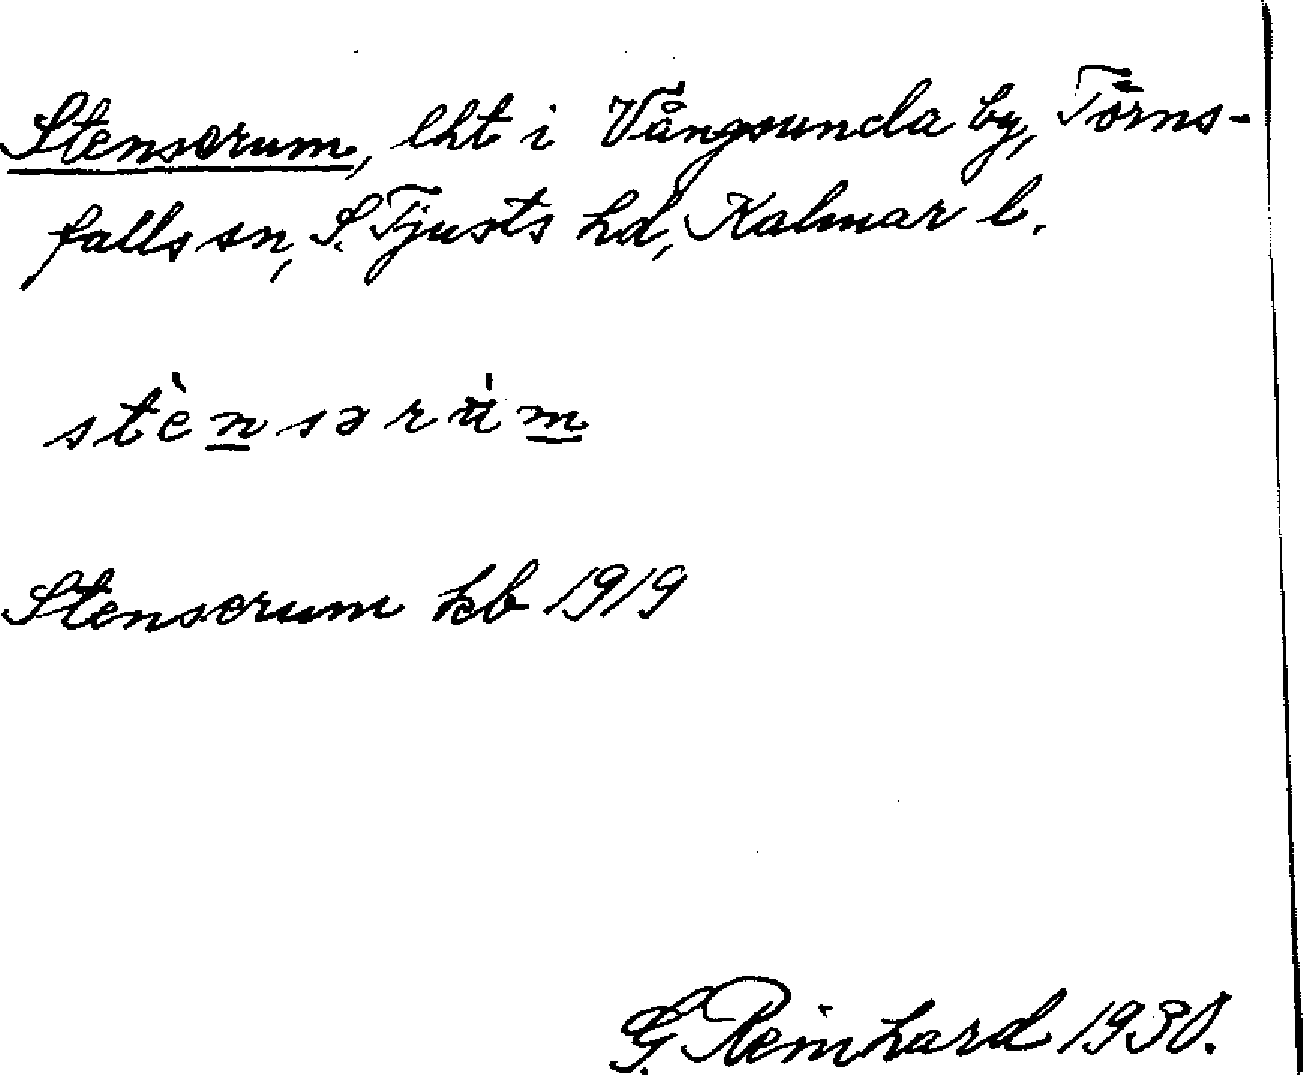 Stenserum, lht i Vångsunda by, Törns-
falls sn, S. Tjusts hd, Kalmar l.
stènsərùm
Stenserum kb 1919
G. Reinhard 1930.